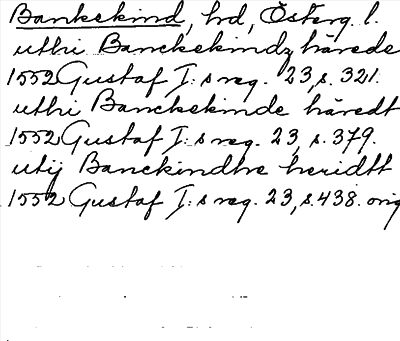 Bankekind, hd, Österg. l.
uthi Banckekindz härede
1552 Gustaf I:s reg. 23, s. 321.
uthi Banckekinde häredt
1552 Gustaf I:s reg. 23, s. 379.
utij Banckindhe heridtt
1552 Gustaf I:s reg. 23, s. 438. orig